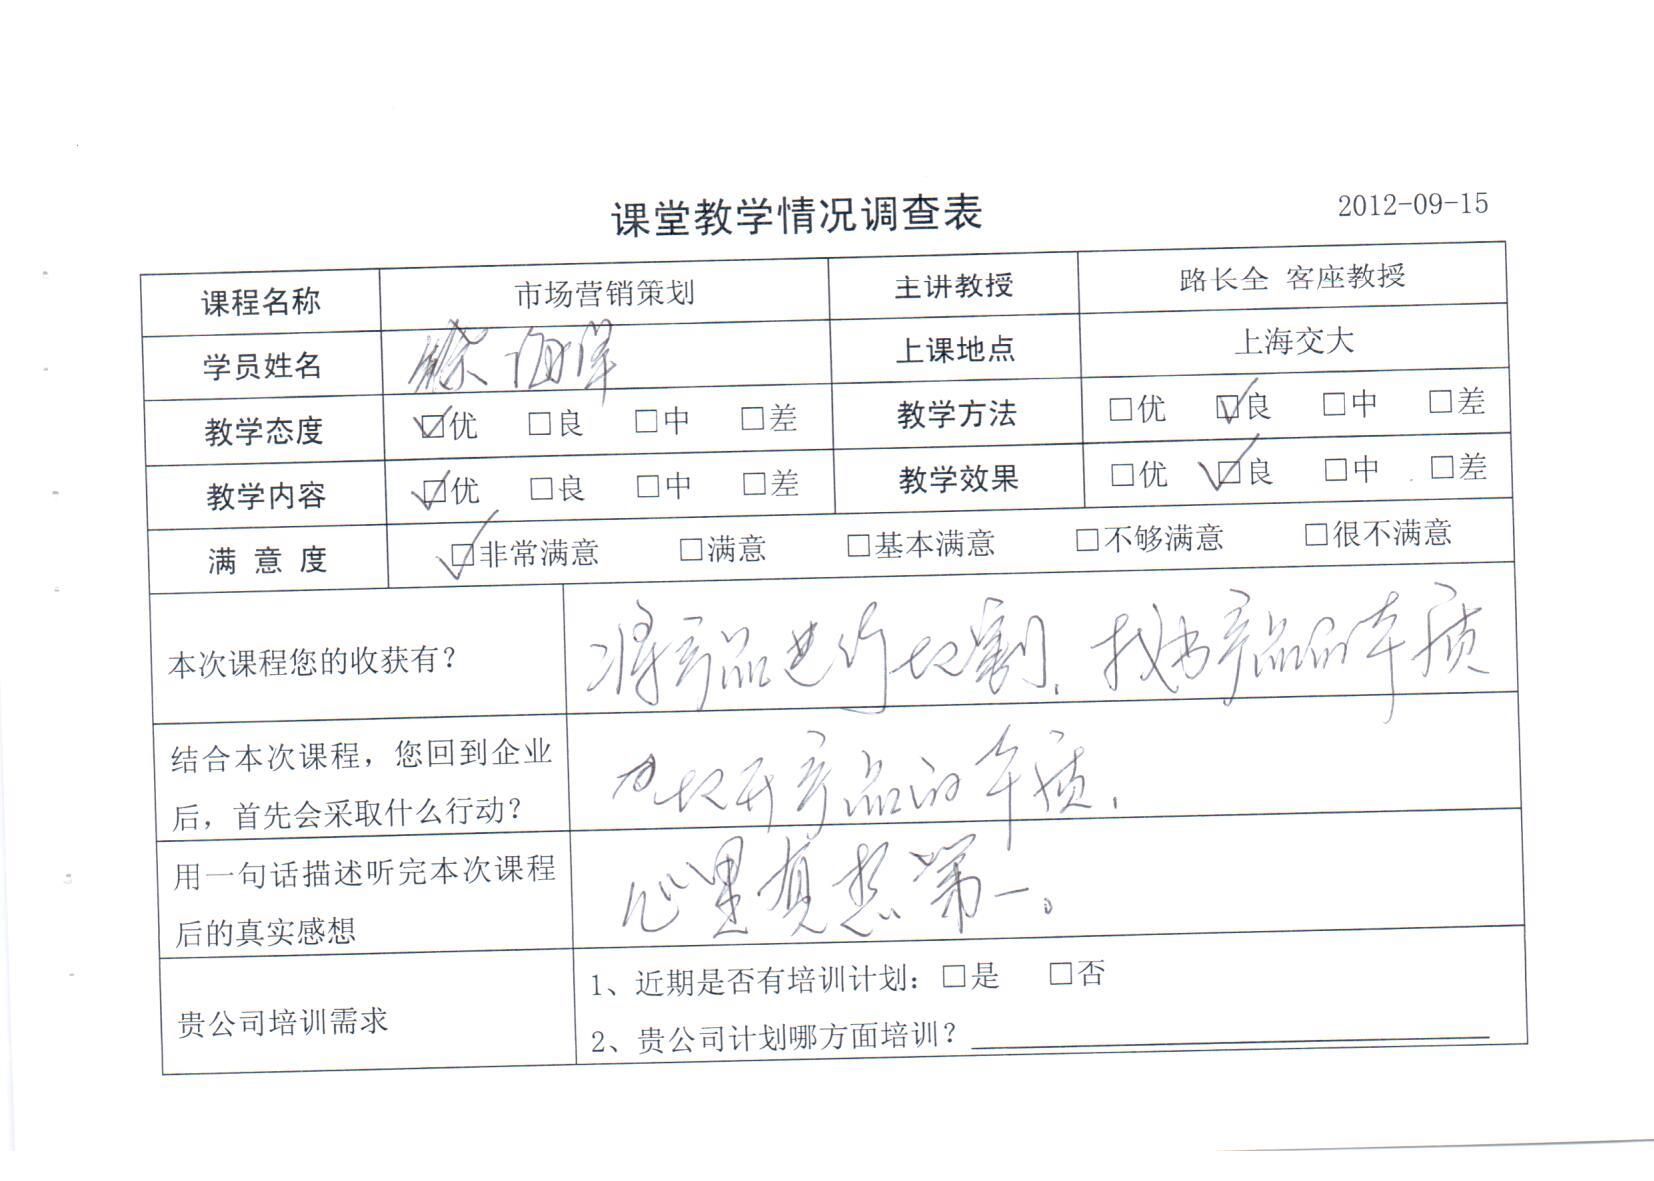 课堂教学情况调查表
2012-09-15
课程名称 市场营销策划 主讲教授 路长全 客座教授
学员姓名 海洋 上课地点 上海交大
教学态度 ☑优 □良 □中 □差 教学方法 □优 ☑良 □中 □差
教学内容 ☑优 □良 □中 □差 教学效果 □优 ☑良 □中 □差
满 意 度 ☑非常满意 □满意 □基本满意 □不够满意 □很不满意
本次课程您的收获有? 将产品进行切割,找出产品的本质
结合本次课程,您回到企业
后,首先会采取什么行动? 切开产品的本质.
用一句话描述听完本次课程
后的真实感想 心里真想第一。
贵公司培训需求
1、近期是否有培训计划: □是 □否
2、贵公司计划哪方面培训?